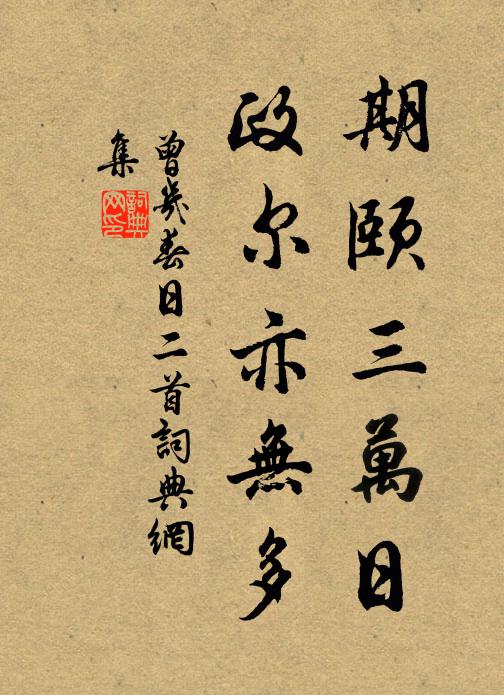 期頤三萬日
政尔亦無多
曾幾春日二首詞典網
集
詞典
网印